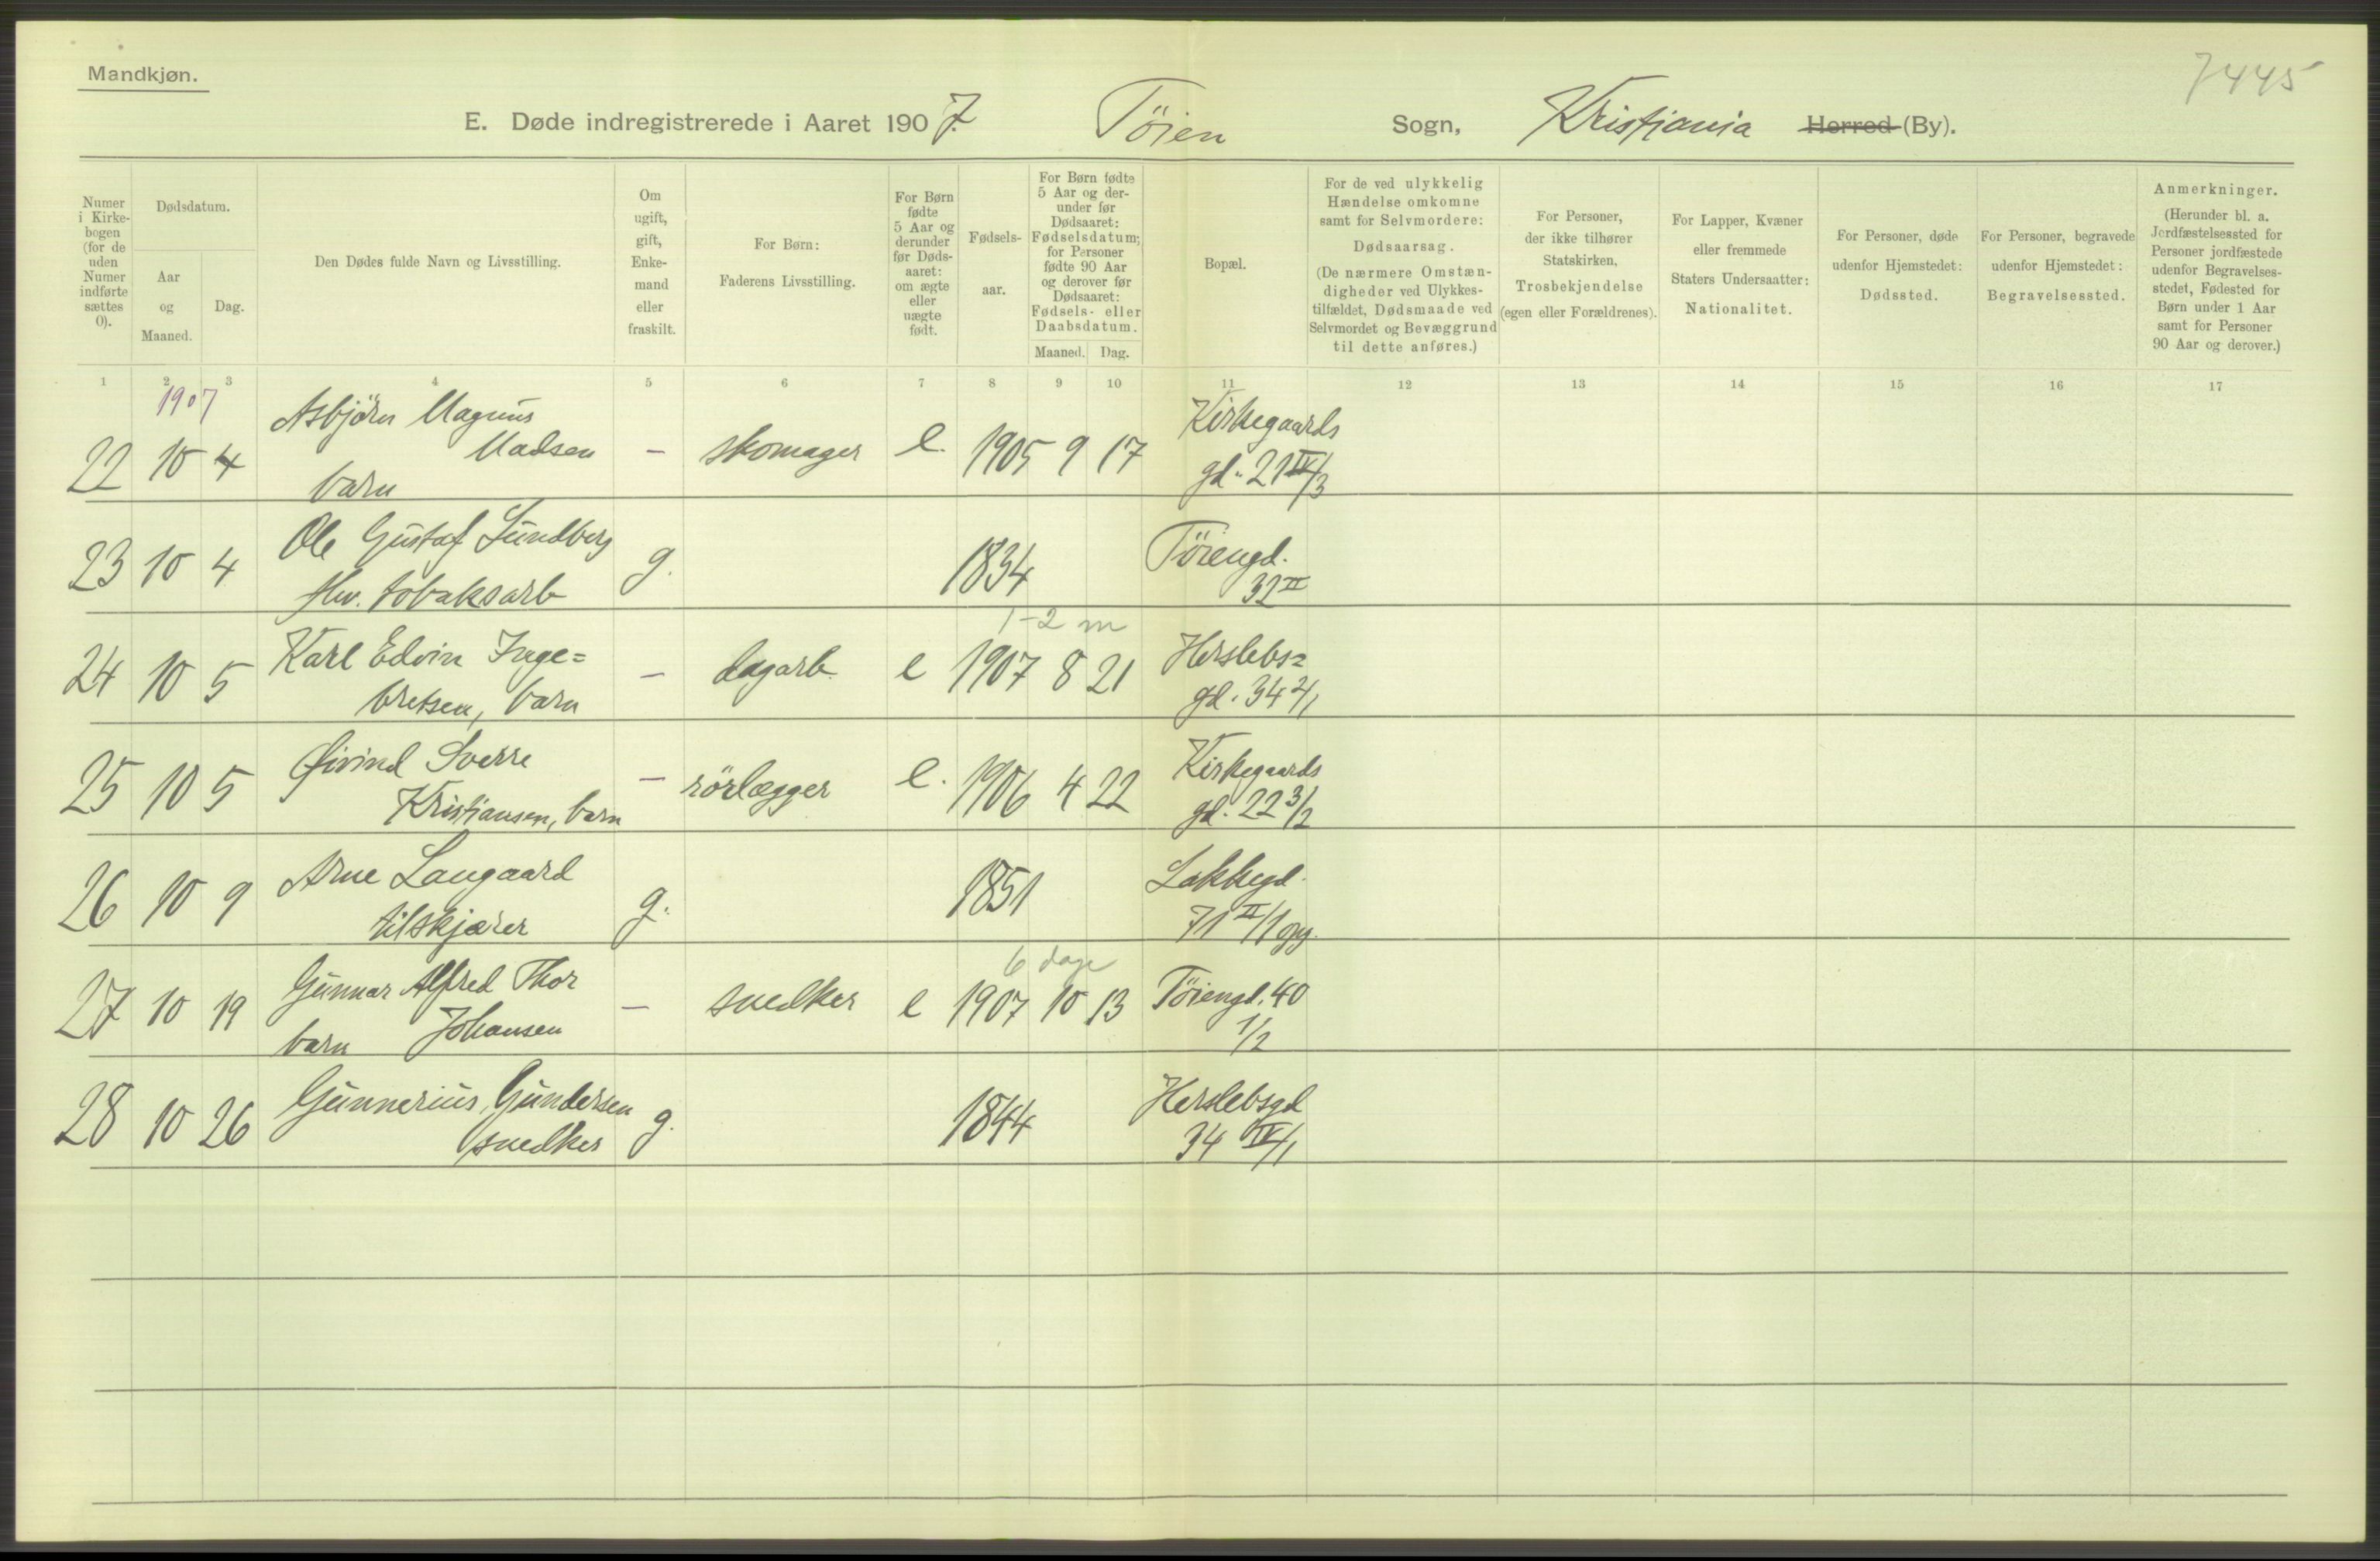 Mandkjøn.
7445
E. Døde indregistrerede i Aaret 1907. Töien Sogn, Kristiania Herred (By).
Numer i Kirke-bogen (for de uden Numer indførte sættes 0).
Dødsdatum.
Aar og Maaned.
Dag.
Den Dødes fulde Navn og Livsstilling.
Om ugift, gift, Enke-mand eller fraskilt.
For Børn:
Faderens Livsstilling.
For Børn fødte 5 Aar og derunder før Døds-aaret: om ægte eller uægte født.
Fødsels-aar.
For Børn fødte 5 Aar og der-under før Dødsaaret: Fødselsdatum; for Personer fødte 90 Aar og derover før Dødsaaret: Fødsels- eller Daabsdatum.
Maaned. Dag.
Bopæl.
For de ved ulykkelig Hændelse omkomne samt for Selvmordere:
Dødsaarsag.
(De nærmere Omstæn-digheder ved Ulykkes-tilfældet, Dødsmaade ved Selvmordet og Bevæggrund til dette anføres.)
For Personer, der ikke tilhører Statskirken,
Trosbekjendelse
(egen eller Forældrenes).
For Lapper, Kvæner eller fremmede Staters Undersaatter:
Nationalitet.
For Personer, døde udenfor Hjemstedet:
Dødssted.
For Personer, begravede udenfor Hjemstedet:
Begravelsessted.
Anmerkninger.
(Herunder bl. a. Jordfæstelsessted for Personer jordfæstede udenfor Begravelses-stedet, Fødested for Børn under 1 Aar samt for Personer 90 Aar og derover.)
1 2 3 4 5 6 7 8 9 10 11 12 13 14 15 16 17
1907
Asbjörn Magnus Kirkegaards
22 10 4 Madsen – skomager e. 1905 9 17 gd. 21 IV/3
barn
Ole Gustaf Lundberg Töiengd.
23 10 4 fhv. tobaksarb g. 1834 32 II
1-2 m
Karl Edvin Inge= Herslebs=
24 10 5 bretsen, barn – dagarb. e 1907 8 21 gd. 34 2/1
Øivind Sverre Kirkegaards
25 10 5 Kristiansen, barn – rörlægger e. 1906 4 22 gd. 22 3/2
Arne Langaard Lakkegd.
26 10 9 tilskjærer g. 1851 71 II/1 opg.
6 dage
Gunnar Alfred Thor
27 10 19 barn Johansen – snedker e 1907 10 13 Töiengd. 40
1/2
Gunnerius Gundersen Herslebsgd
28 10 26 snedker g. 1844 34 IV/1